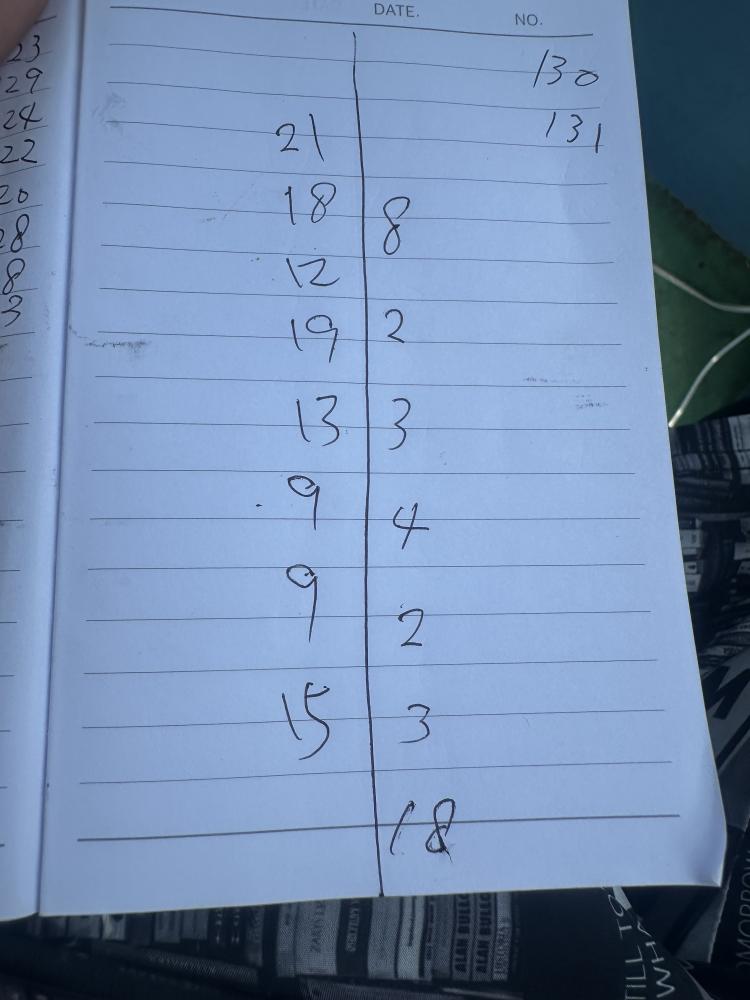 DATE. NO.
23
29
24
22
20
28
8
3
130
131
21
18 8
12
19 2
13 3
9 4
9 2
15 3
18
ALAN BULLO
ALAN BULLO
TILL TO
WHA